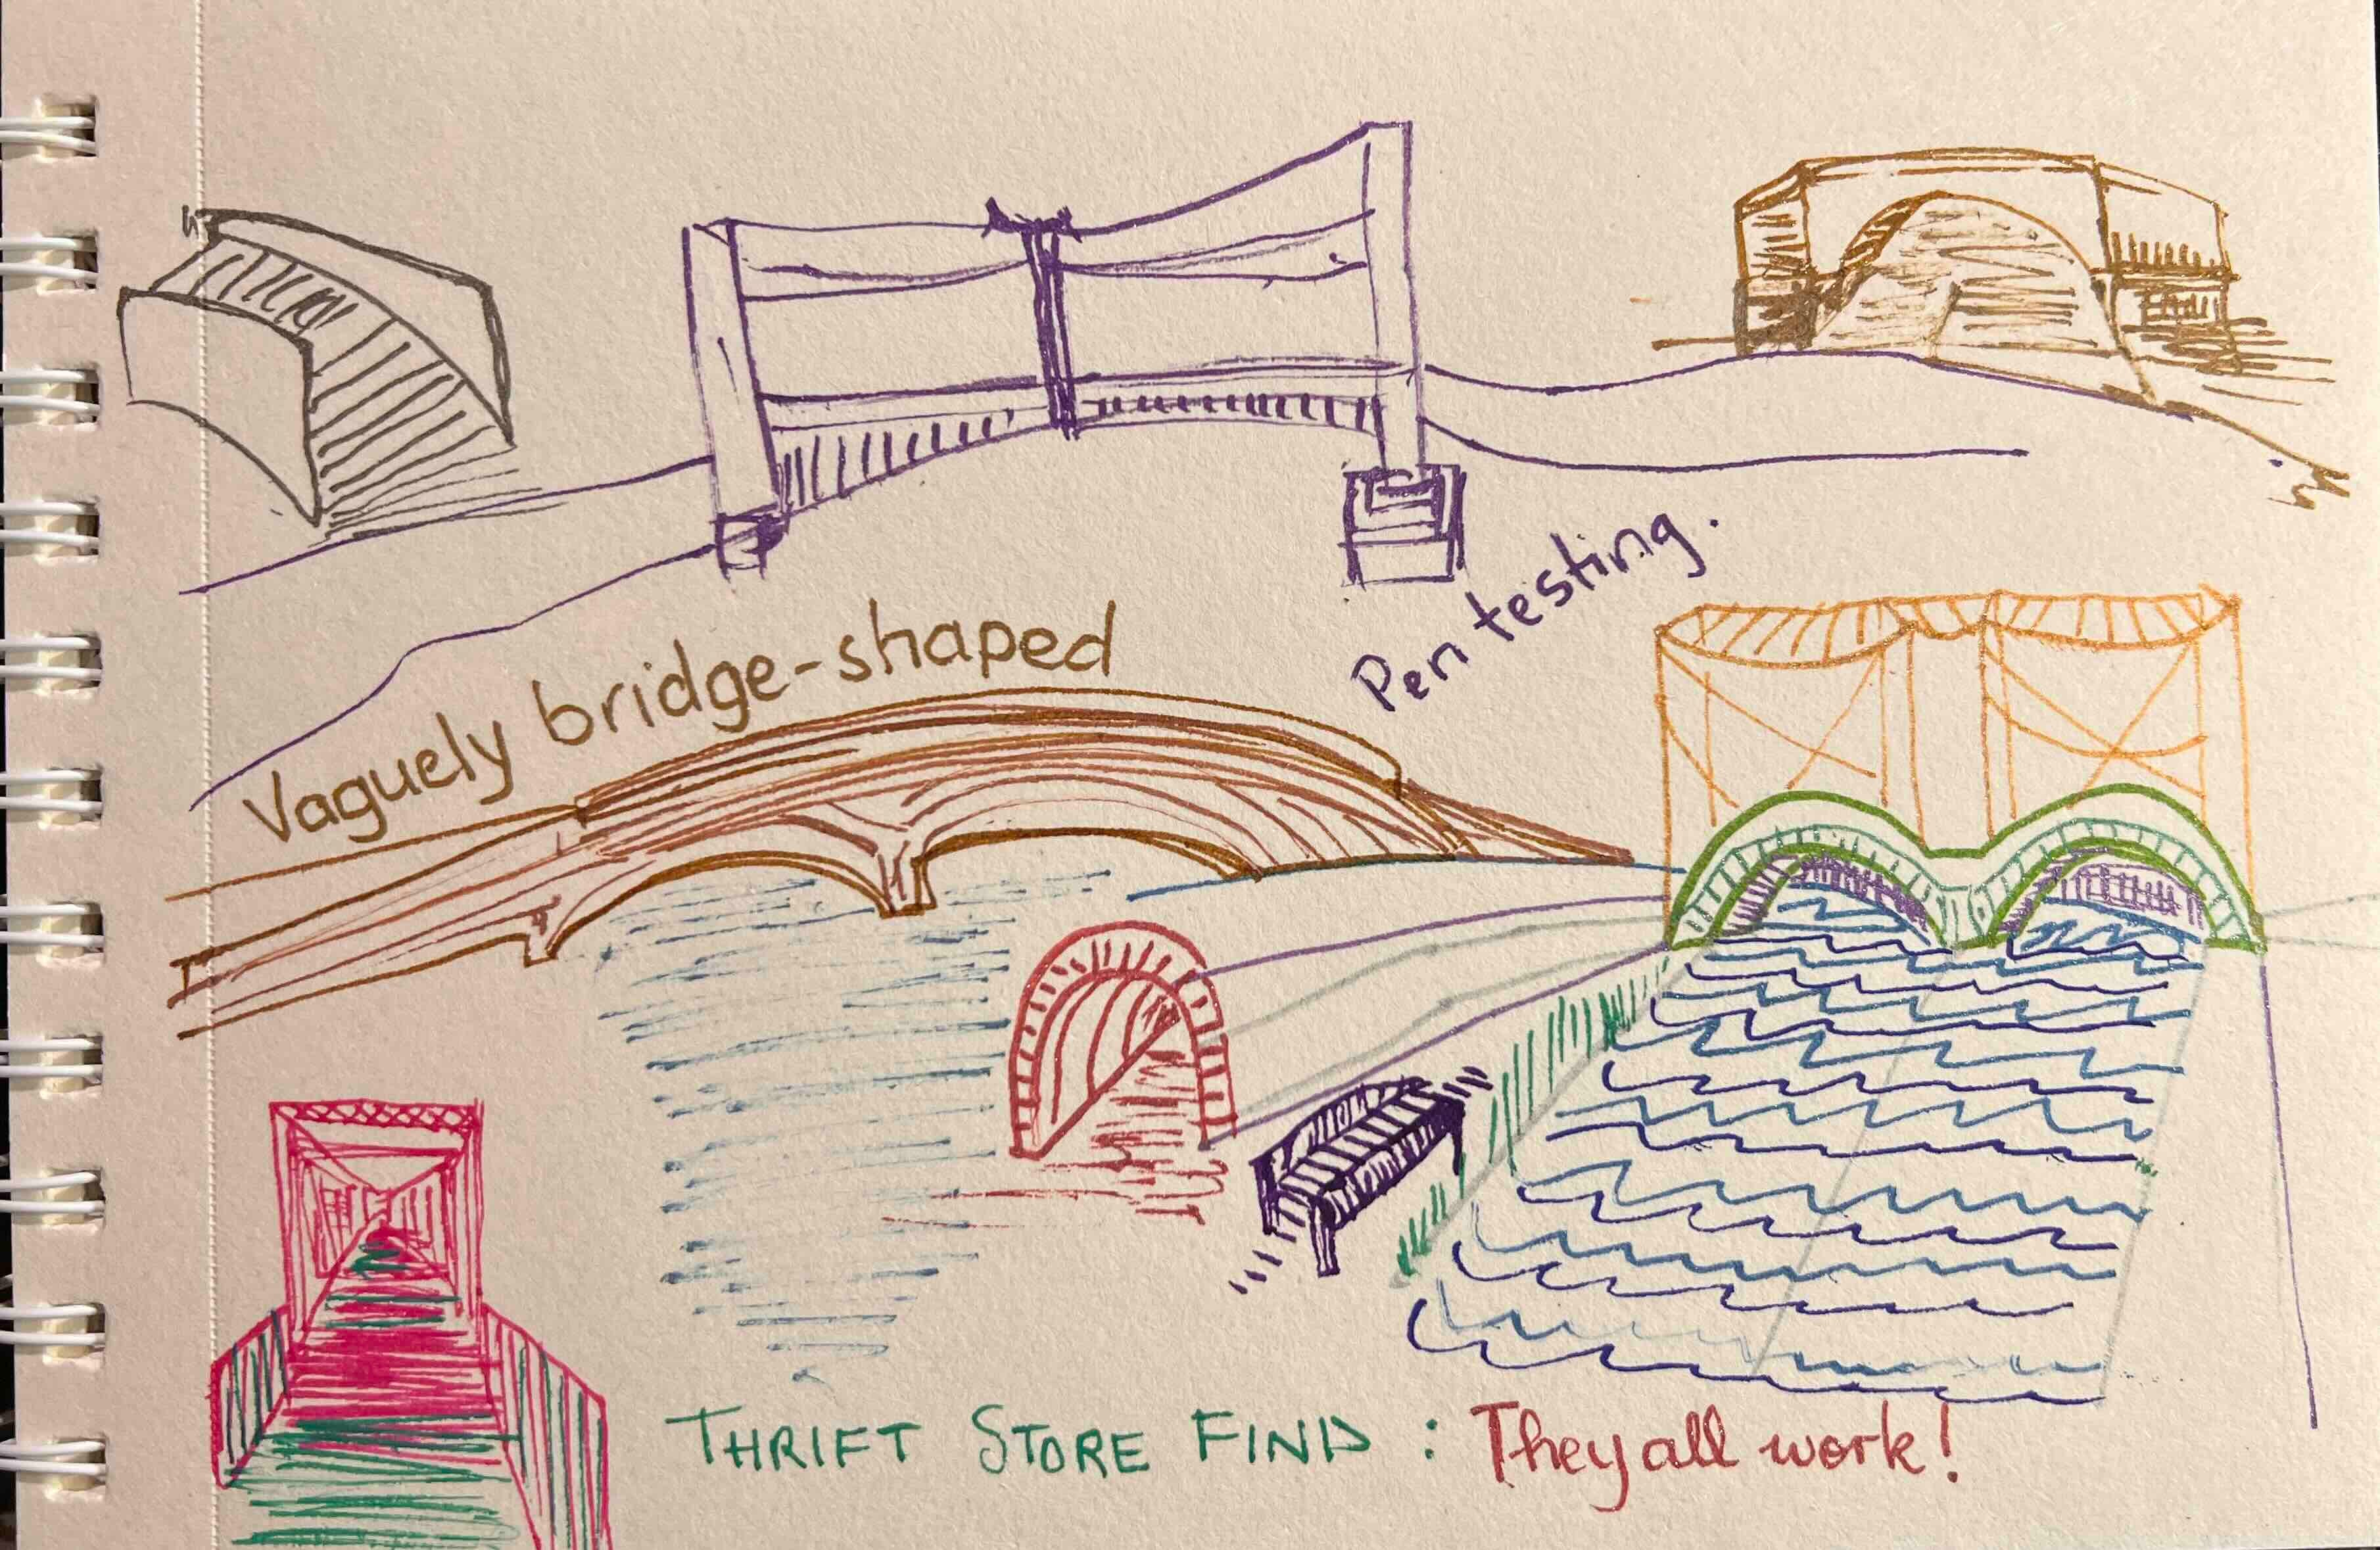 Vaguely bridge-shaped
Pen testing.
THRIFT STORE FIND : They all work!